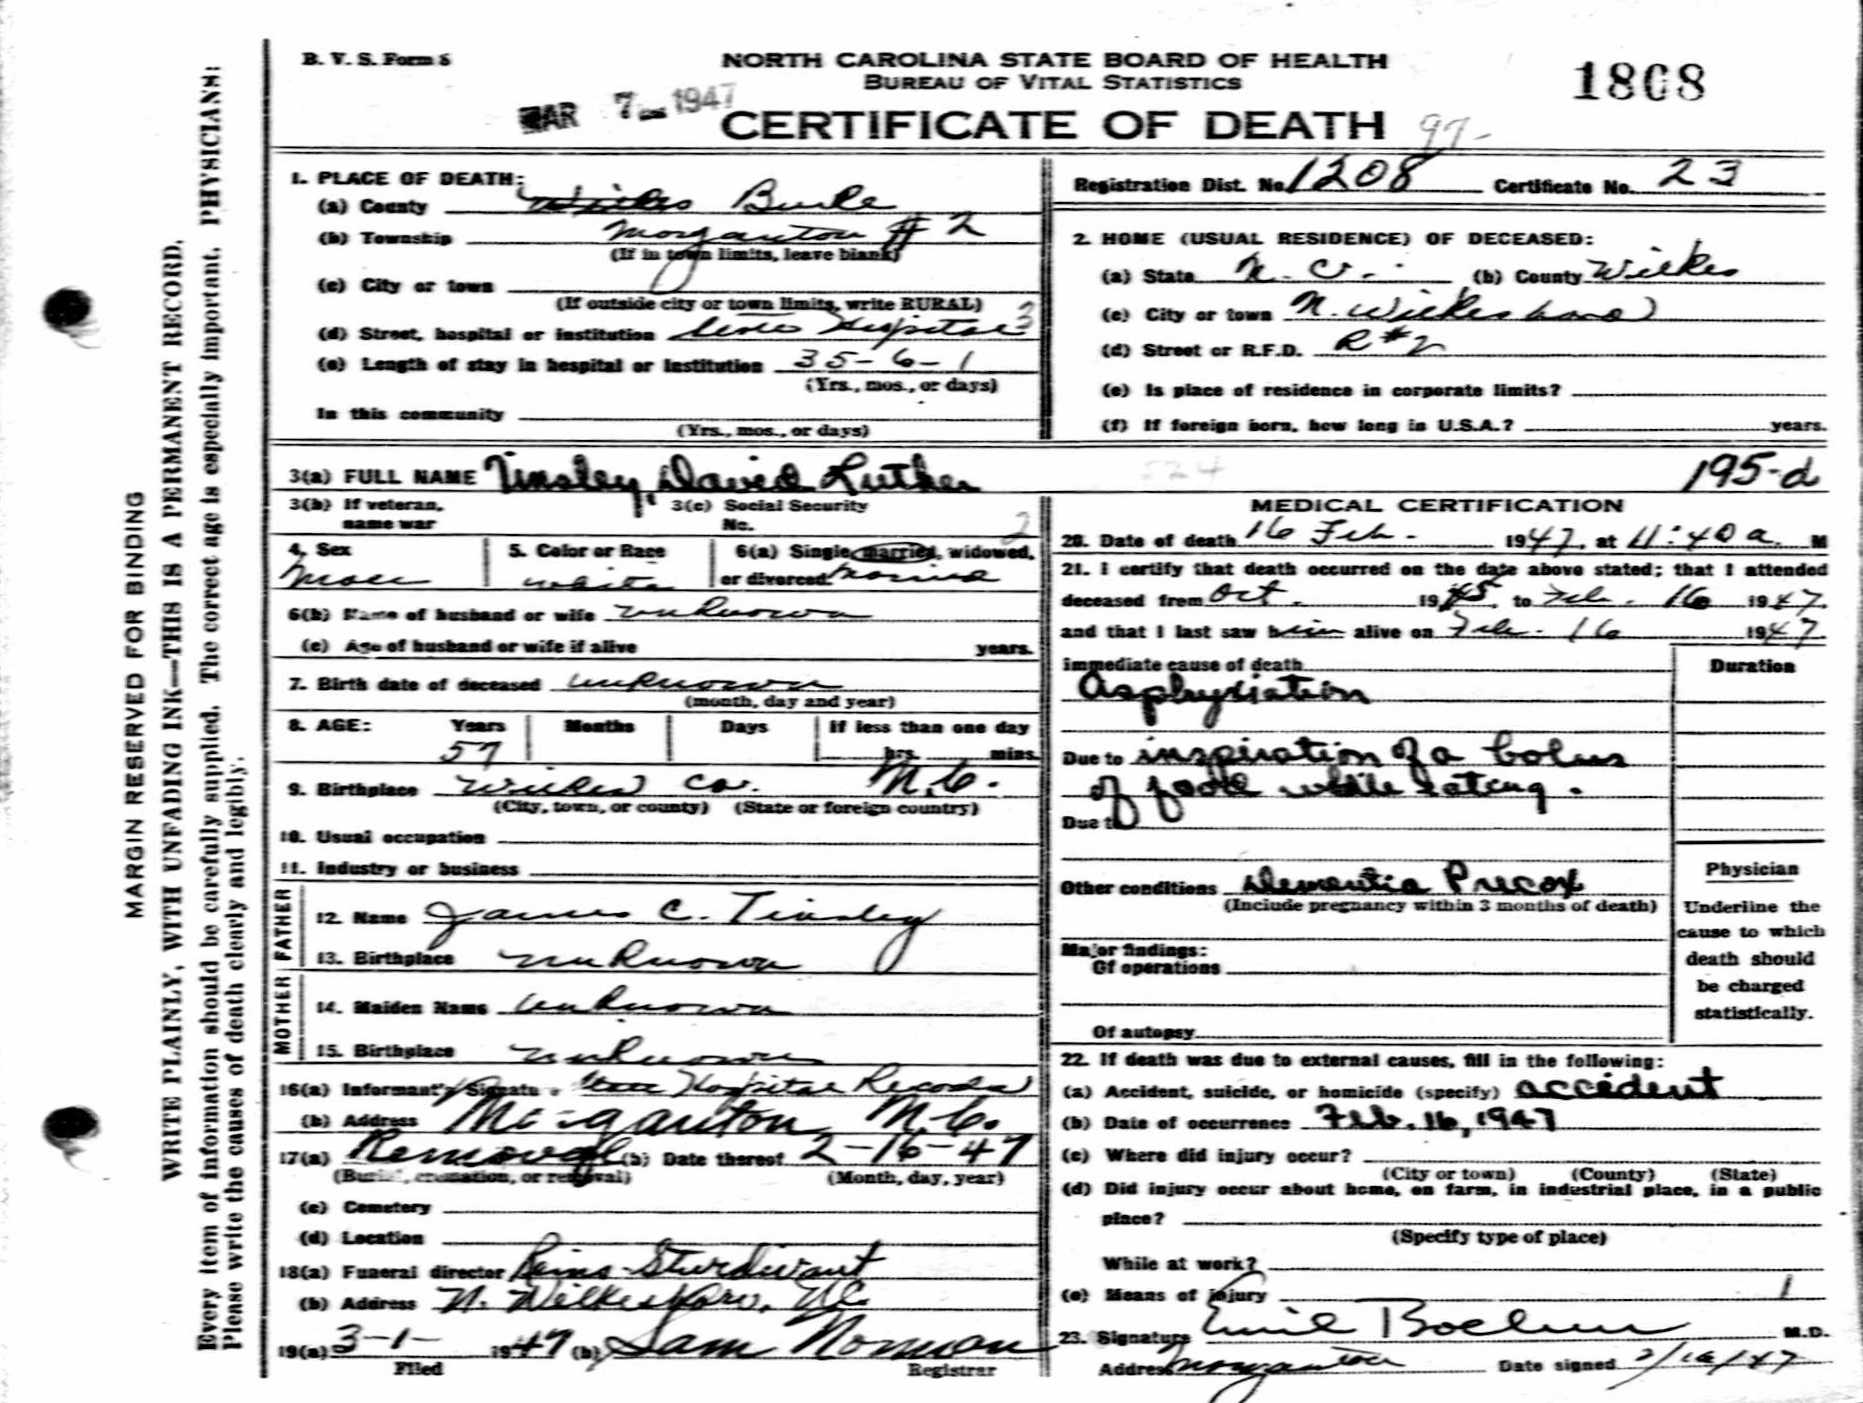 B. V. S. Form 8
NORTH CAROLINA STATE BOARD OF HEALTH
BUREAU OF VITAL STATISTICS
MAR 7 1947
CERTIFICATE OF DEATH
97-
1808
MARGIN RESERVED FOR BINDING
WRITE PLAINLY, WITH UNFADING INK—THIS IS A PERMANENT RECORD.
Every item of information should be carefully supplied. The correct age is especially important. PHYSICIANS:
Please write the causes of death clearly and legibly.
1. PLACE OF DEATH:
(a) County Wilkes Burke
(b) Township Morganton #2
(If in town limits, leave blank)
(c) City or town
(If outside city or town limits, write RURAL)
(d) Street, hospital or institution State Hospital 3
(e) Length of stay in hospital or institution 35-6-1
(Yrs., mos., or days)
In this community
(Yrs., mos., or days)
Registration Dist. No. 1208 Certificate No. 23
2. HOME (USUAL RESIDENCE) OF DECEASED:
(a) State N. C. (b) County Wilkes
(c) City or town N. Wilkesboro
(d) Street or R.F.D. R #2
(e) Is place of residence in corporate limits?
(f) If foreign born, how long in U.S.A.? years.
3(a) FULL NAME Tinsley, David Luther
3(b) If veteran, name war
3(c) Social Security No.
2
4. Sex Male
5. Color or Race white
6(a) Single, married, widowed, or divorced married
6(b) Name of husband or wife unknown
(c) Age of husband or wife if alive years.
7. Birth date of deceased unknown
(month, day and year)
8. AGE: Years Months Days If less than one day
57 hrs. mins.
9. Birthplace Wilkes Co. N.C.
(City, town, or county) (State or foreign country)
10. Usual occupation
11. Industry or business
FATHER
12. Name James C. Tinsley
13. Birthplace unknown
MOTHER
14. Maiden Name unknown
15. Birthplace unknown
16(a) Informant's Signature State Hospital Records
(b) Address Morganton, N.C.
17(a) Removal (b) Date thereof 2-16-47
(Burial, cremation, or removal) (Month, day, year)
(c) Cemetery
(d) Location
18(a) Funeral director Reins-Sturdivant
(b) Address N. Wilkesboro, N.C.
19(a) 3-1- 1947 (b) Sam Norman
Filed Registrar
524
195-d
MEDICAL CERTIFICATION
20. Date of death 16 Feb. 1947, at 11:40 a. M
21. I certify that death occurred on the date above stated; that I attended
deceased from Oct. 1945, to Feb. 16 1947,
and that I last saw him alive on Feb. 16 1947
Immediate cause of death
Duration
Asphyxiation
Due to inspiration of a bolus
of food while eating.
Due to
Other conditions Dementia Precox
(Include pregnancy within 3 months of death)
Major findings:
Of operations
Of autopsy
Physician
Underline the
cause to which
death should
be charged
statistically.
22. If death was due to external causes, fill in the following:
(a) Accident, suicide, or homicide (specify) accident
(b) Date of occurrence Feb. 16, 1947
(c) Where did injury occur?
(City or town) (County) (State)
(d) Did injury occur about home, on farm, in industrial place, in a public
place?
(Specify type of place)
While at work?
(e) Means of injury 1
23. Signature Emil M.D.
Address Morganton Date signed 2/16/47